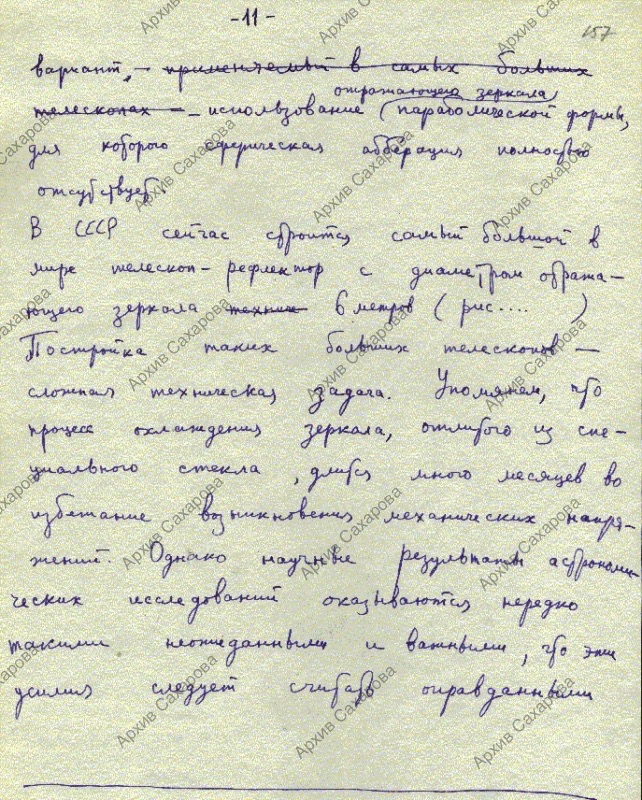 -11-
157
вариант, – применяемый в самых больших
отражающего зеркала
телескопах – – использование (параболической формы,
для которого сферическая абберация полностью
отсутствует.
В СССР сейчас строится самый большой в
мире телескоп-рефлектор с диаметром отража-
ющего зеркала технич 6 метров ( рис.... )
Постройка таких больших телескопов –
сложная техническая задача. Упомянем, что
процесс охлаждения зеркала, отлитого из спе-
циального стекла, длится много месяцев во
избежание возникновения механических напря-
жений. Однако научные результаты астрономи-
ческих исследований оказываются нередко
такими неожиданными и важными, что эти
усилия следует считать оправданными
Архив Сахарова